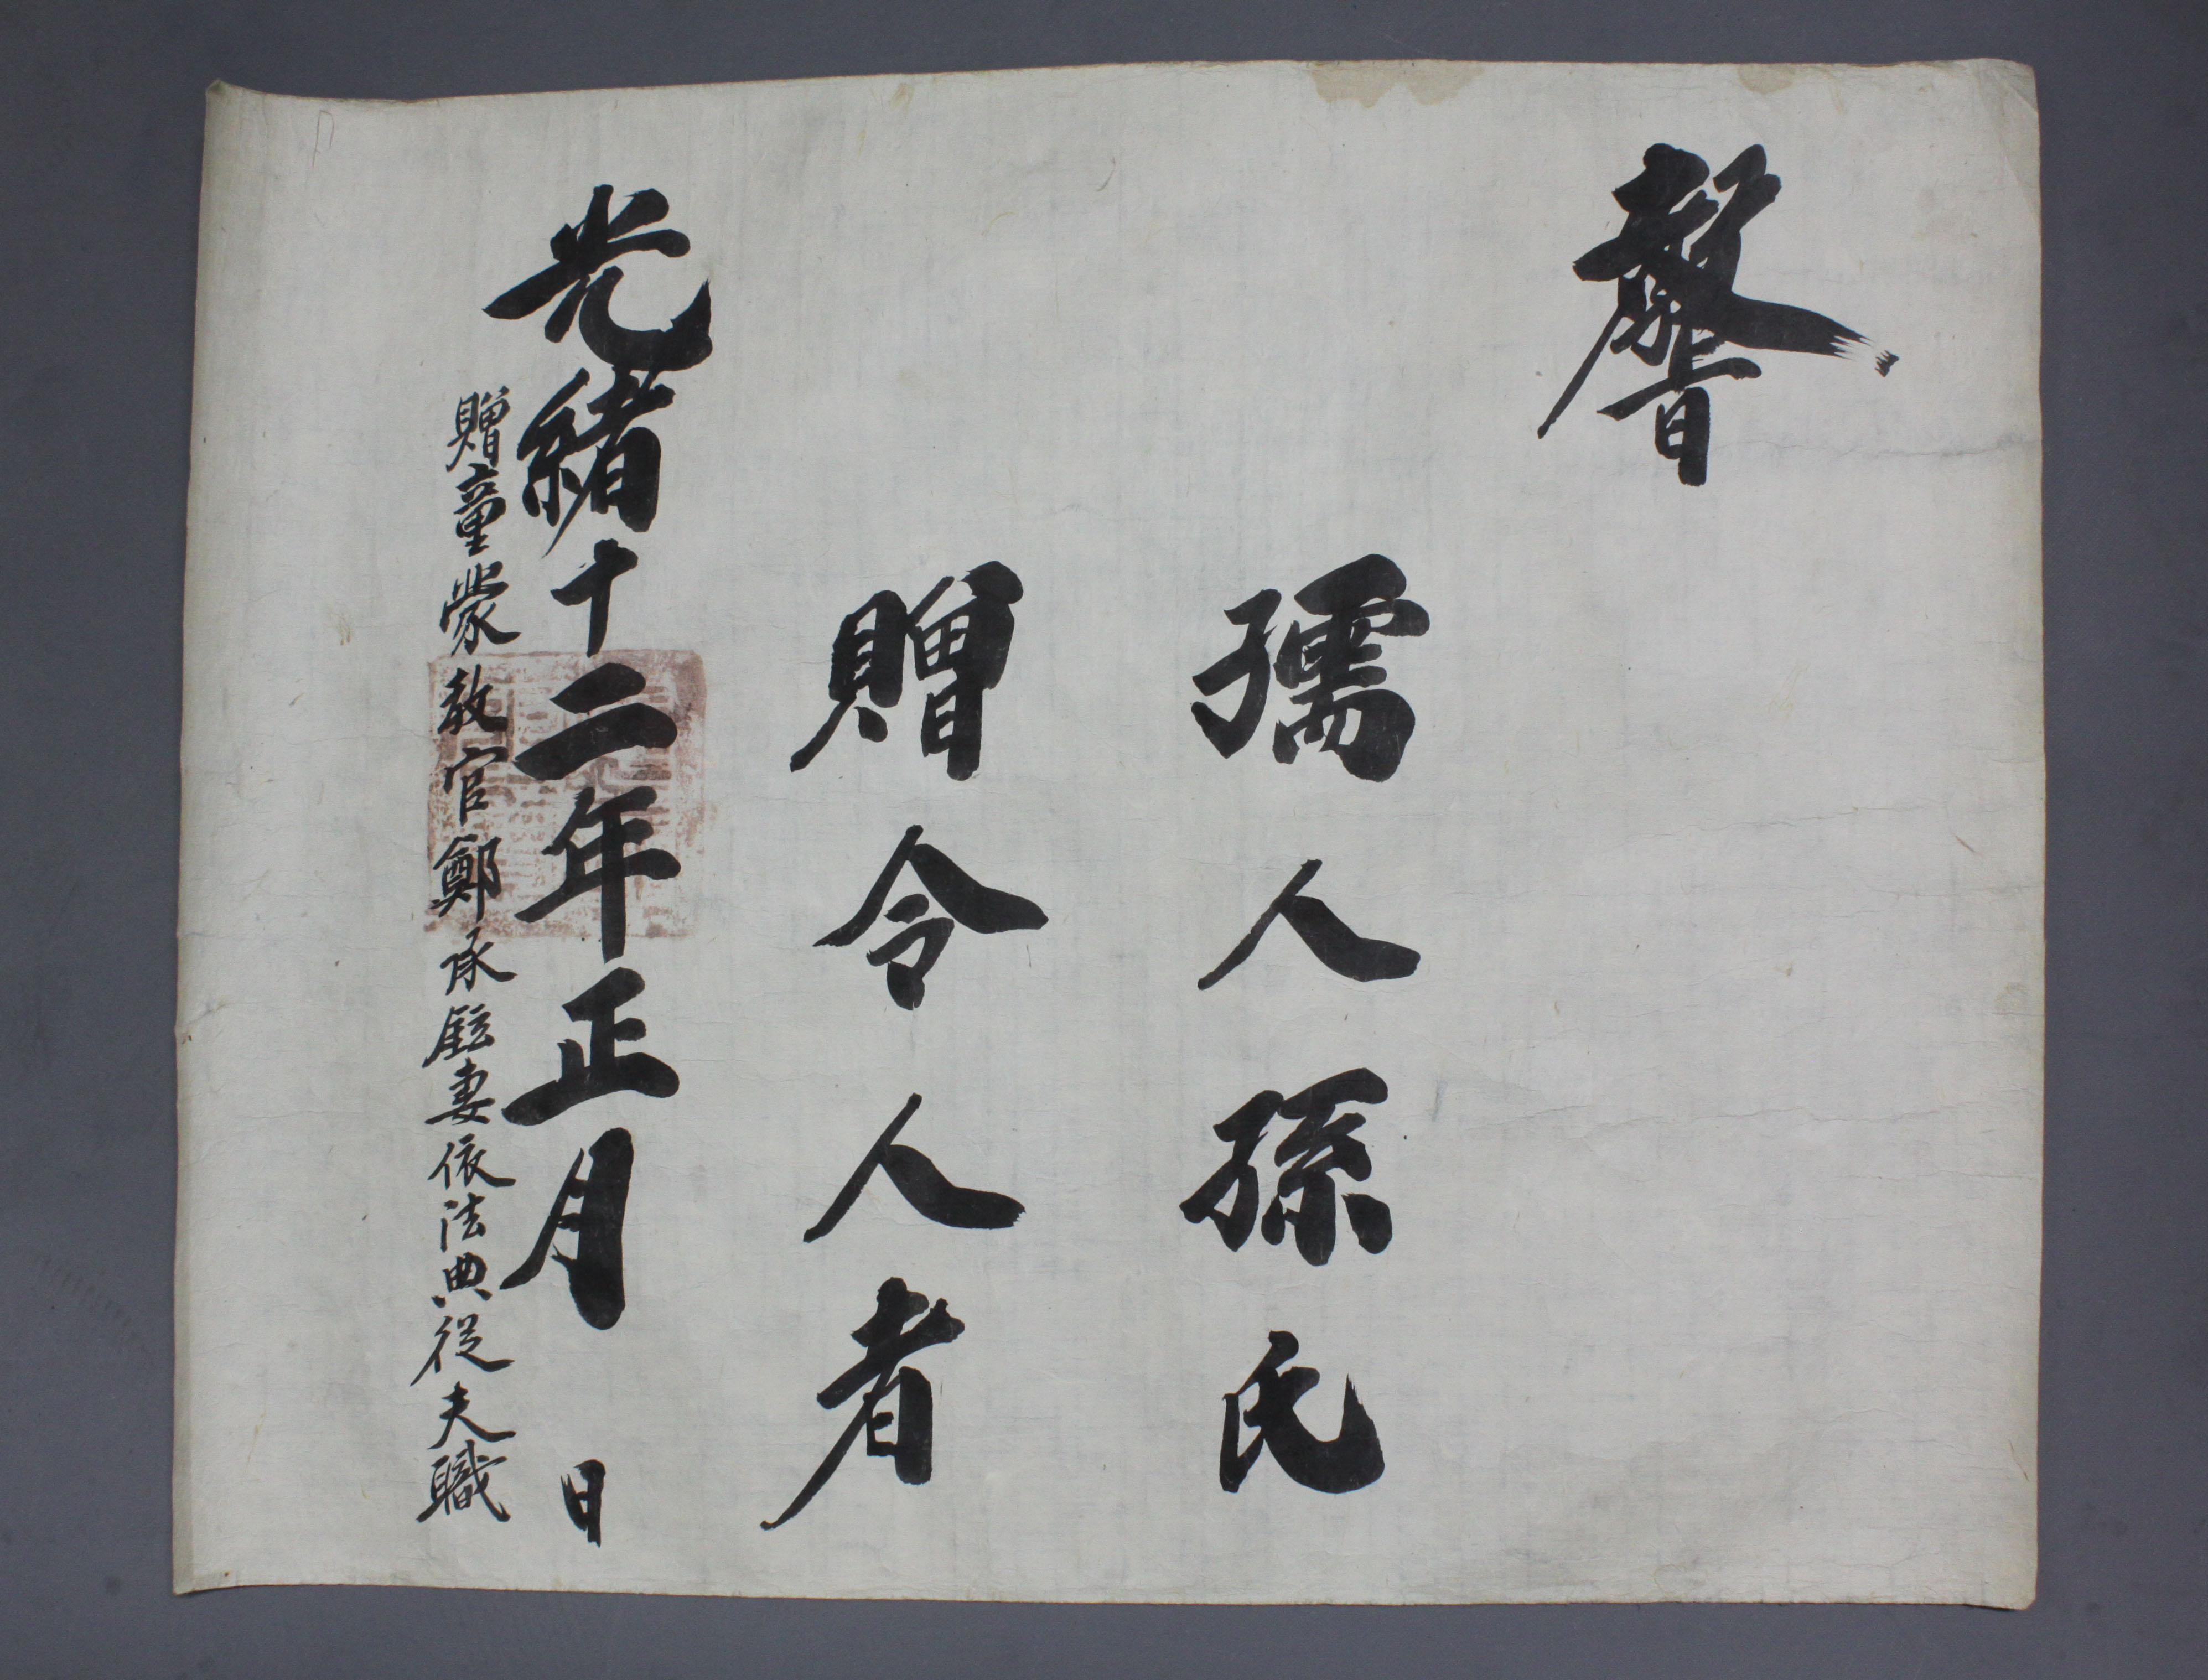 敎旨
孺人孫氏
贈令人者
光緖十二年正月 日
贈童蒙敎官鄭承鉉妻依法典從夫職